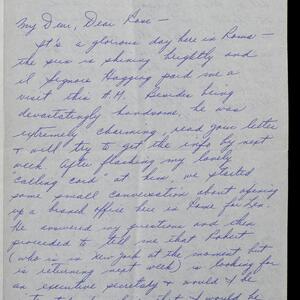 My Dear, Dear Rose –
It's a glorious day here in Rome –
the sun is shining brightly and
il Signore Haggiag paid me a
visit this A.M. Besides being
devastatingly handsome, he was
extremely charming, read your letter
& will try to get the info by next
week. After flashing my lovely
"calling card" at him, we started
some small conversation about opening
up a branch office here in Rome for Len.
He answered my questions and then
proceeded to tell me that Robert
(who is in New York at the moment but
is returning next week) is looking for
an executive secretary & would I be